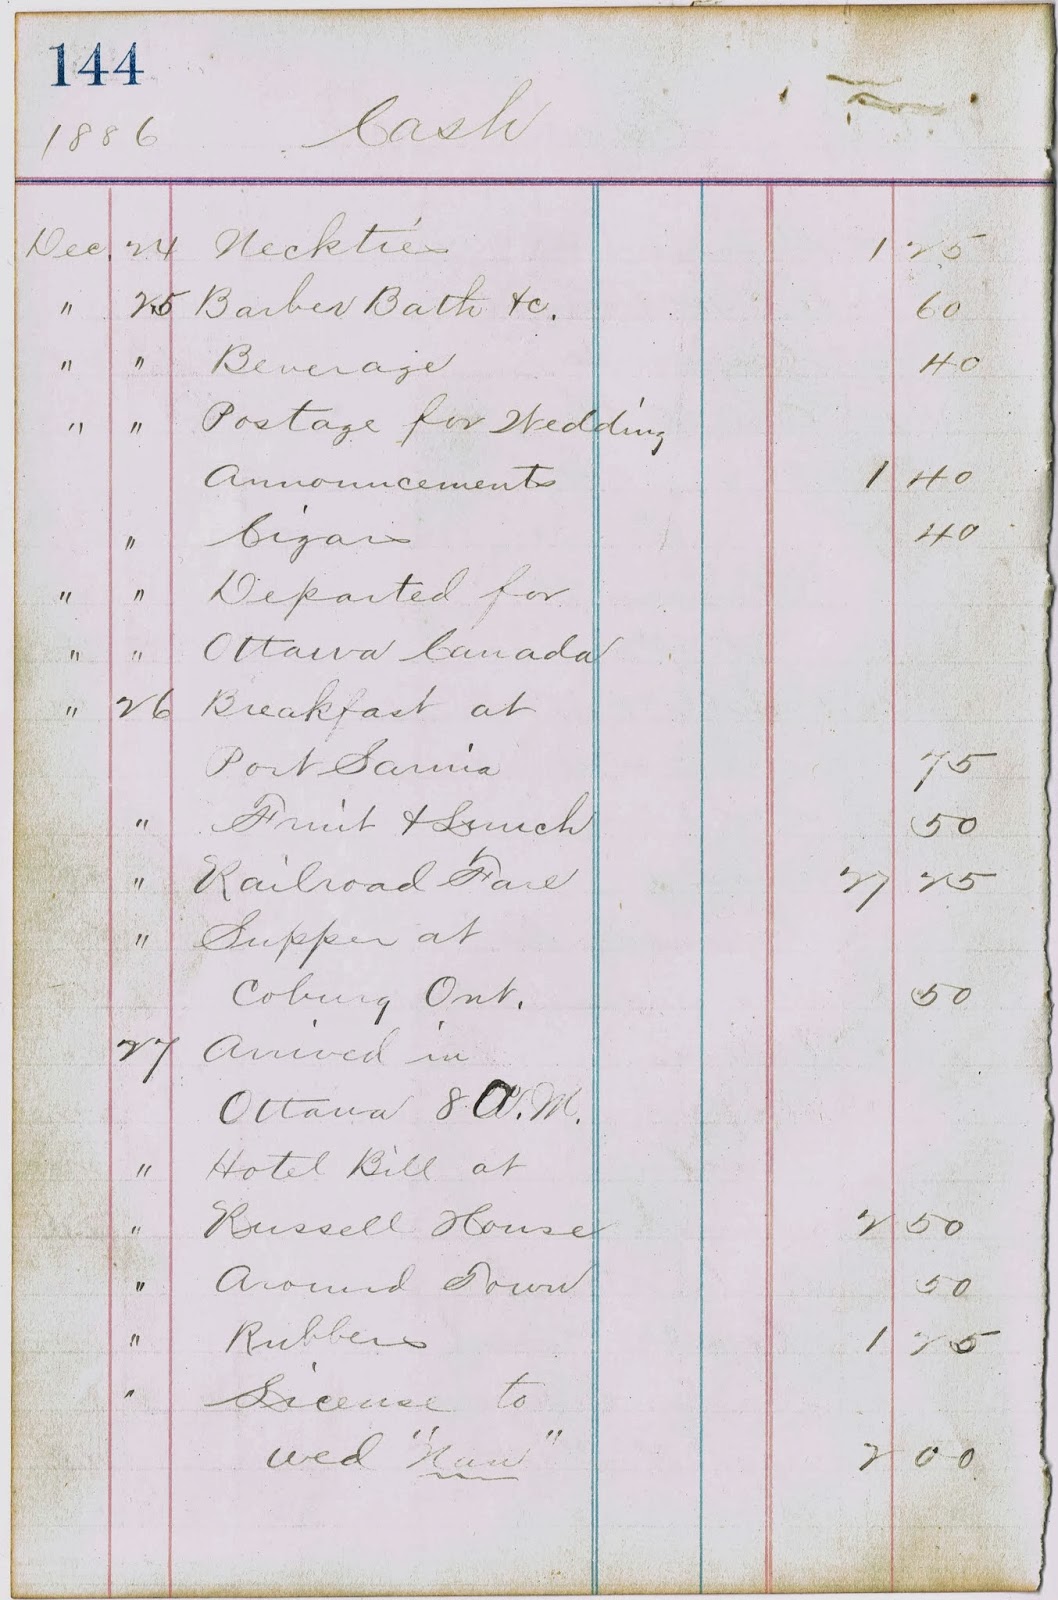 144
1886 Cash
Dec. 24 Neckties 1 25
" 25 Barber Bath &c. 60
" " Beverage 40
" " Postage for Wedding
Announcements 1 40
" Cigars 40
" " Departed for
" " Ottawa Canada
" 26 Breakfast at
Port Sarnia 75
" Fruit & Lunch 50
" Railroad Fare 27 25
" Supper at
Coburg Ont. 50
27 Arrived in
Ottawa 8 A.M.
" Hotel Bill at
" Russell House 2 50
" Around Town 50
" Rubbers 1 25
" License to
wed "Nan" 2 00